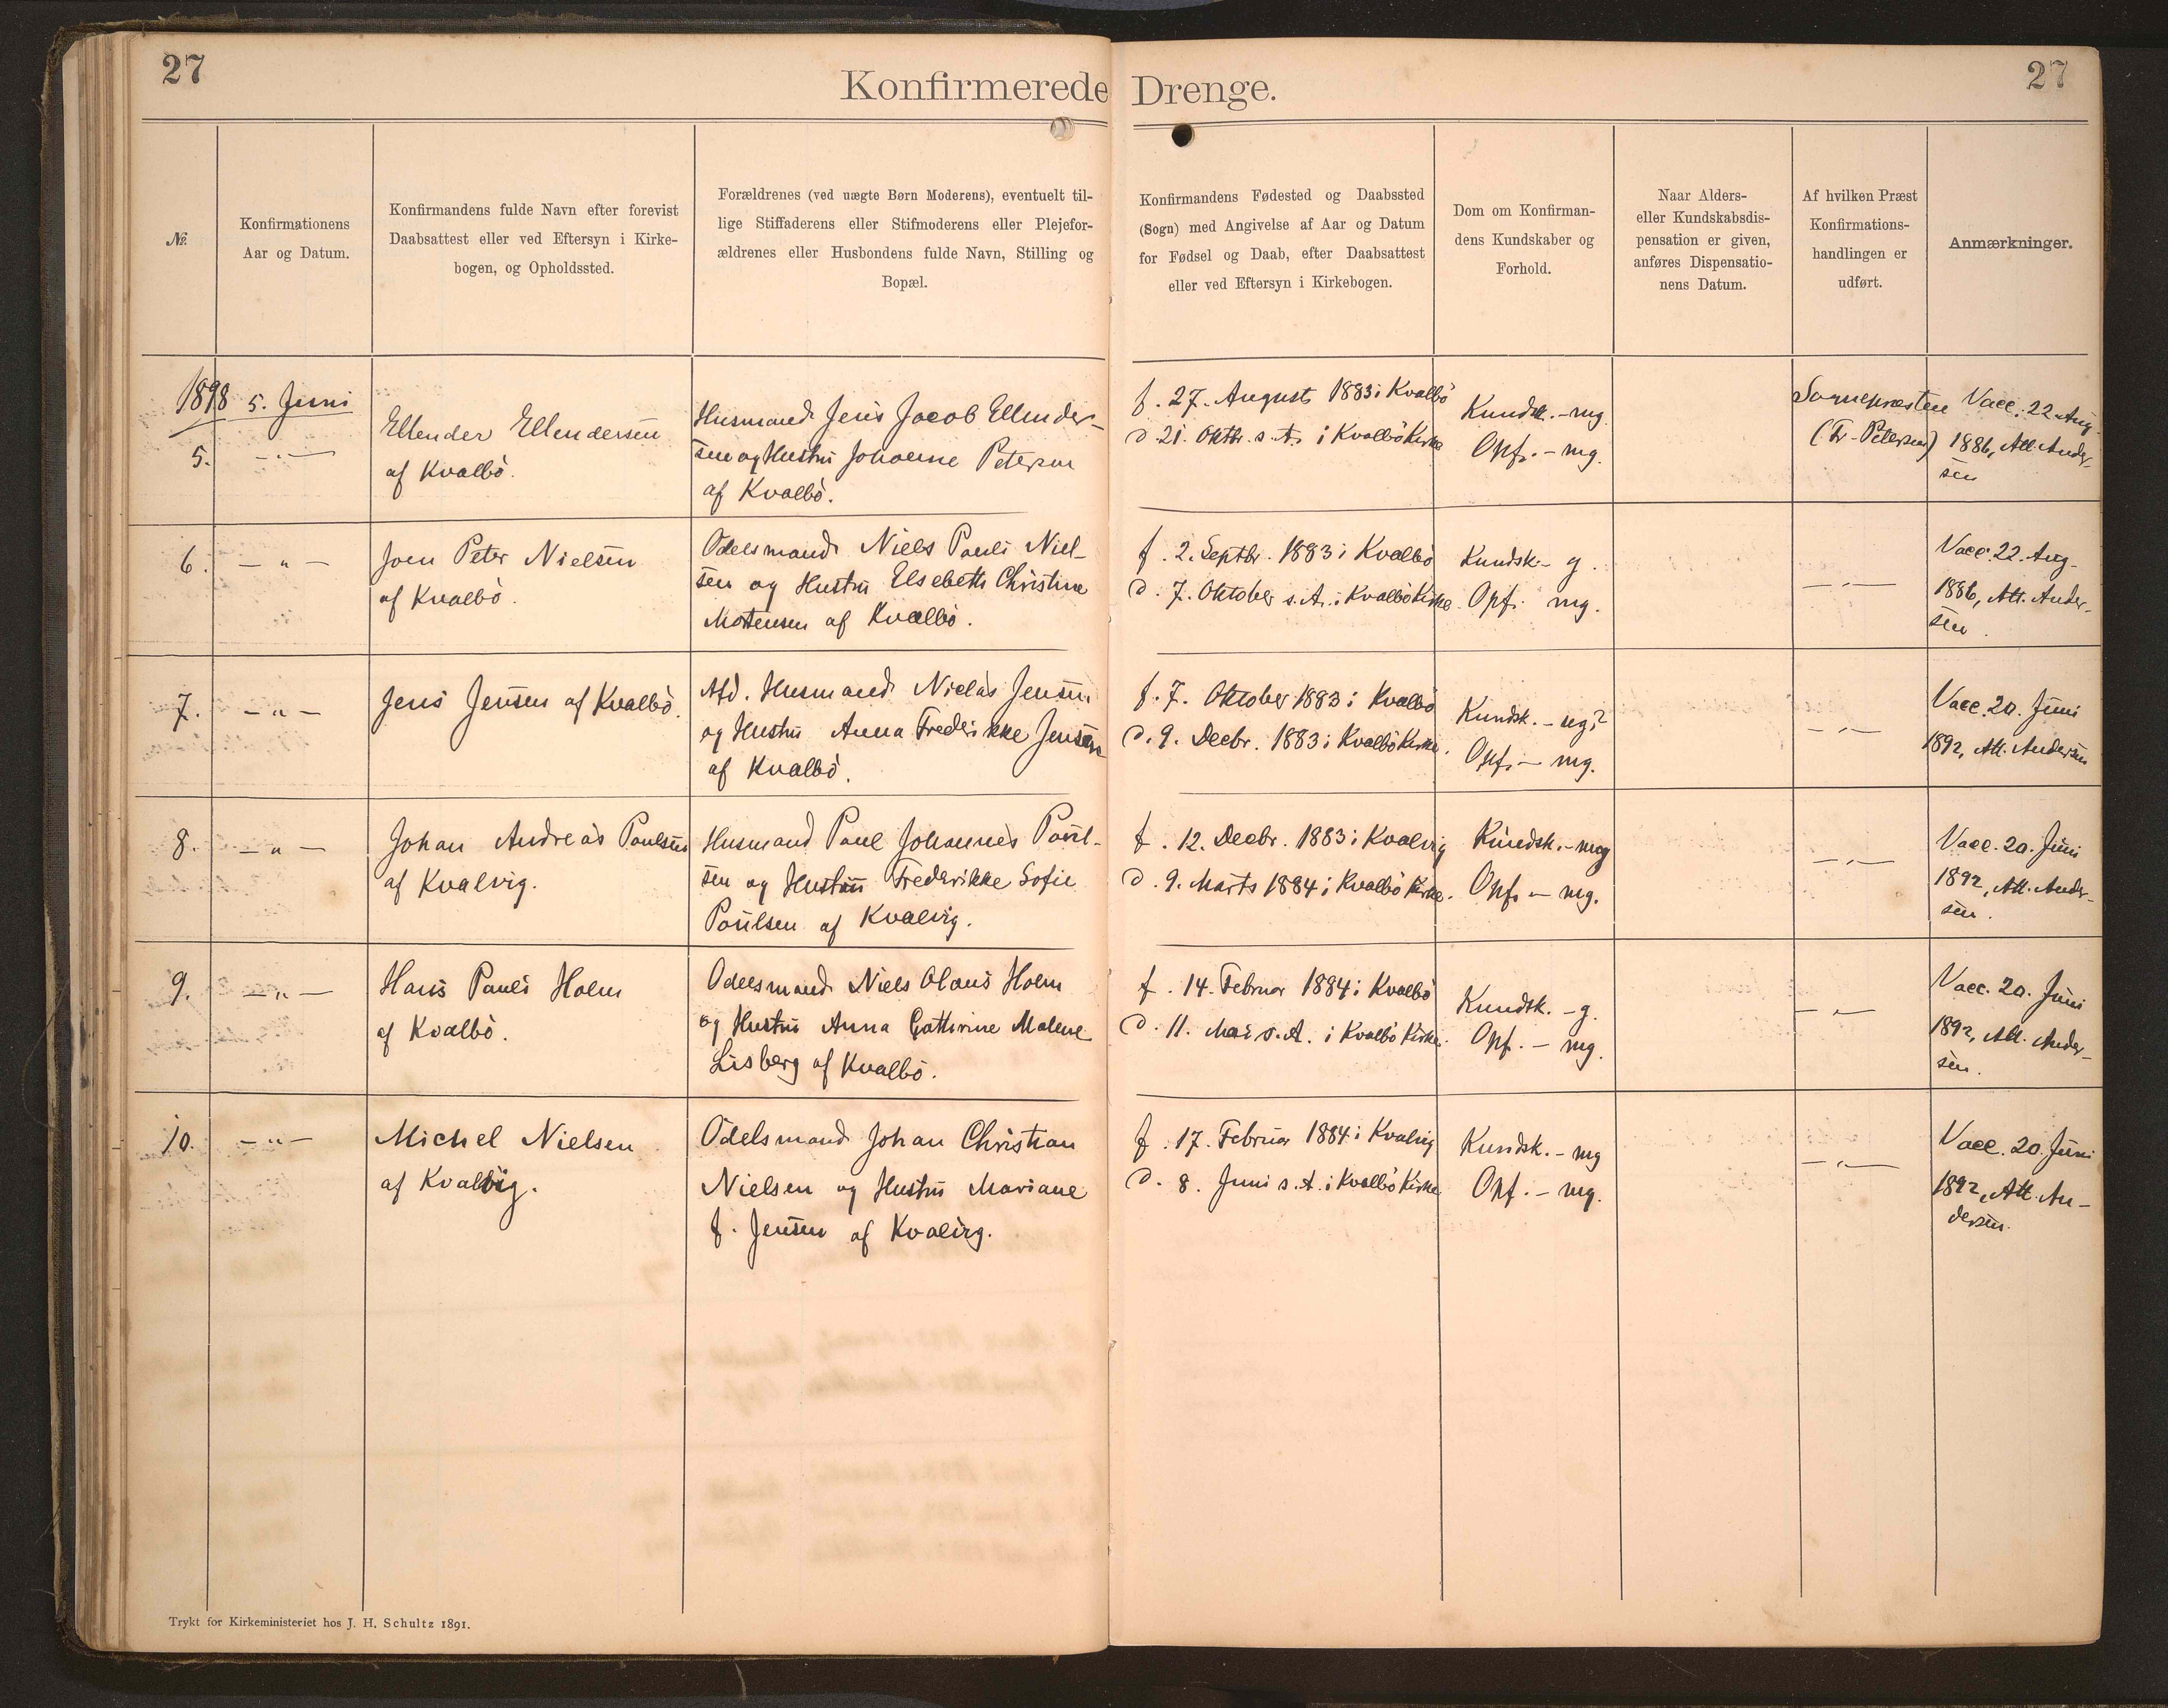 27
27
Konfirmerede Drenge.
№.
Konfirmationens
Aar og Datum.
Konfirmandens fulde Navn efter forevist
Daabsattest eller ved Eftersyn i Kirke-
bogen, og Opholdssted.
Forældrenes (ved uægte Børn Moderens), eventuelt til-
lige Stiffaderens eller Stifmoderens eller Plejefor-
ældrenes eller Husbondens fulde Navn, Stilling og
Bopæl.
Konfirmandens Fødested og Daabssted
(Sogn) med Angivelse af Aar og Datum
for Fødsel og Daab, efter Daabsattest
eller ved Eftersyn i Kirkebogen.
Dom om Konfirman-
dens Kundskaber og
Forhold.
Naar Alders-
eller Kundskabsdis-
pensation er given,
anføres Dispensatio-
nens Datum.
Af hvilken Præst
Konfirmations-
handlingen er
udført.
Anmærkninger.
1898 5. Juni
5.
— " —
Ellender Ellendersen
af Kvalbö.
Husmand Jens Jacob Ellender-
sen og Hustru Johanne Petersen
af Kvalbö.
f. 27. August 1883 i Kvalbö
d. 21. Oktbr. s. A. i Kvalbö Kirke
Kundsk. - mg
Opf. - mg.
Sognepræsten
(Fr. Petersen)
Vacc. 22. Aug.
1886, Att. Ander-
sen
6.
— " —
Joen Peter Nielsen
af Kvalbö.
Odelsmand Niels Pauli Niel-
sen og Hustru Elsebeth Christine
Mortensen af Kvalbö.
f. 2. Septbr. 1883 i Kvalbö
d. 7. Oktober s. A. i Kvalbö Kirke.
Kundsk. - g.
Opf. mg.
— " —
Vacc. 22. Aug.
1886, Att. Ander-
sen.
7.
— " —
Jens Jensen af Kvalbö.
Afd. Husmand Niclas Jensen
og Hustru Anna Frederikke Jensen
af Kvalbö.
f. 7. Oktober 1883 i Kvalbö
d. 9. Decbr. 1883 i Kvalbö Kirke.
Kundsk. - ug?
Opf. — mg.
— " —
Vacc. 20. Juni
1892, Att. Andersen
8.
— " —
Johan Andreas Poulsen
af Kvalvig.
Husmand Poul Johannes Poul-
sen og Hustru Frederikke Sofie
Poulsen af Kvalvig.
f. 12. Decbr. 1883 i Kvalvig
d. 9. Marts 1884 i Kvalbö Kirke.
Kundsk. - mg
Opf. — mg.
— " —
Vacc. 20. Juni
1892, Att. Ander-
sen.
9.
— " —
Hans Pauli Holm
af Kvalbö.
Odelsmand Niels Olaus Holm
og Hustru Anna Cathrine Malene
Lisberg af Kvalbö.
f. 14. Februar 1884 i Kvalbö
d. 11. Mai s. A. i Kvalbö Kirke.
Kundsk. - g.
Opf. — mg.
— " —
Vacc. 20. Juni
1892, Att. Ander-
sen.
10.
— " —
Michel Nielsen
af Kvalvig.
Odelsmand Johan Christian
Nielsen og Hustru Mariane
f. Jensen af Kvalvig.
f. 17. Februar 1884 i Kvalvig
d. 8. Juni s. A. i Kvalbö Kirke
Kundsk. - mg
Opf. - mg.
— " —
Vacc. 20. Juni
1892, Att. An-
dersen.
Trykt for Kirkeministeriet hos J. H. Schultz 1891.